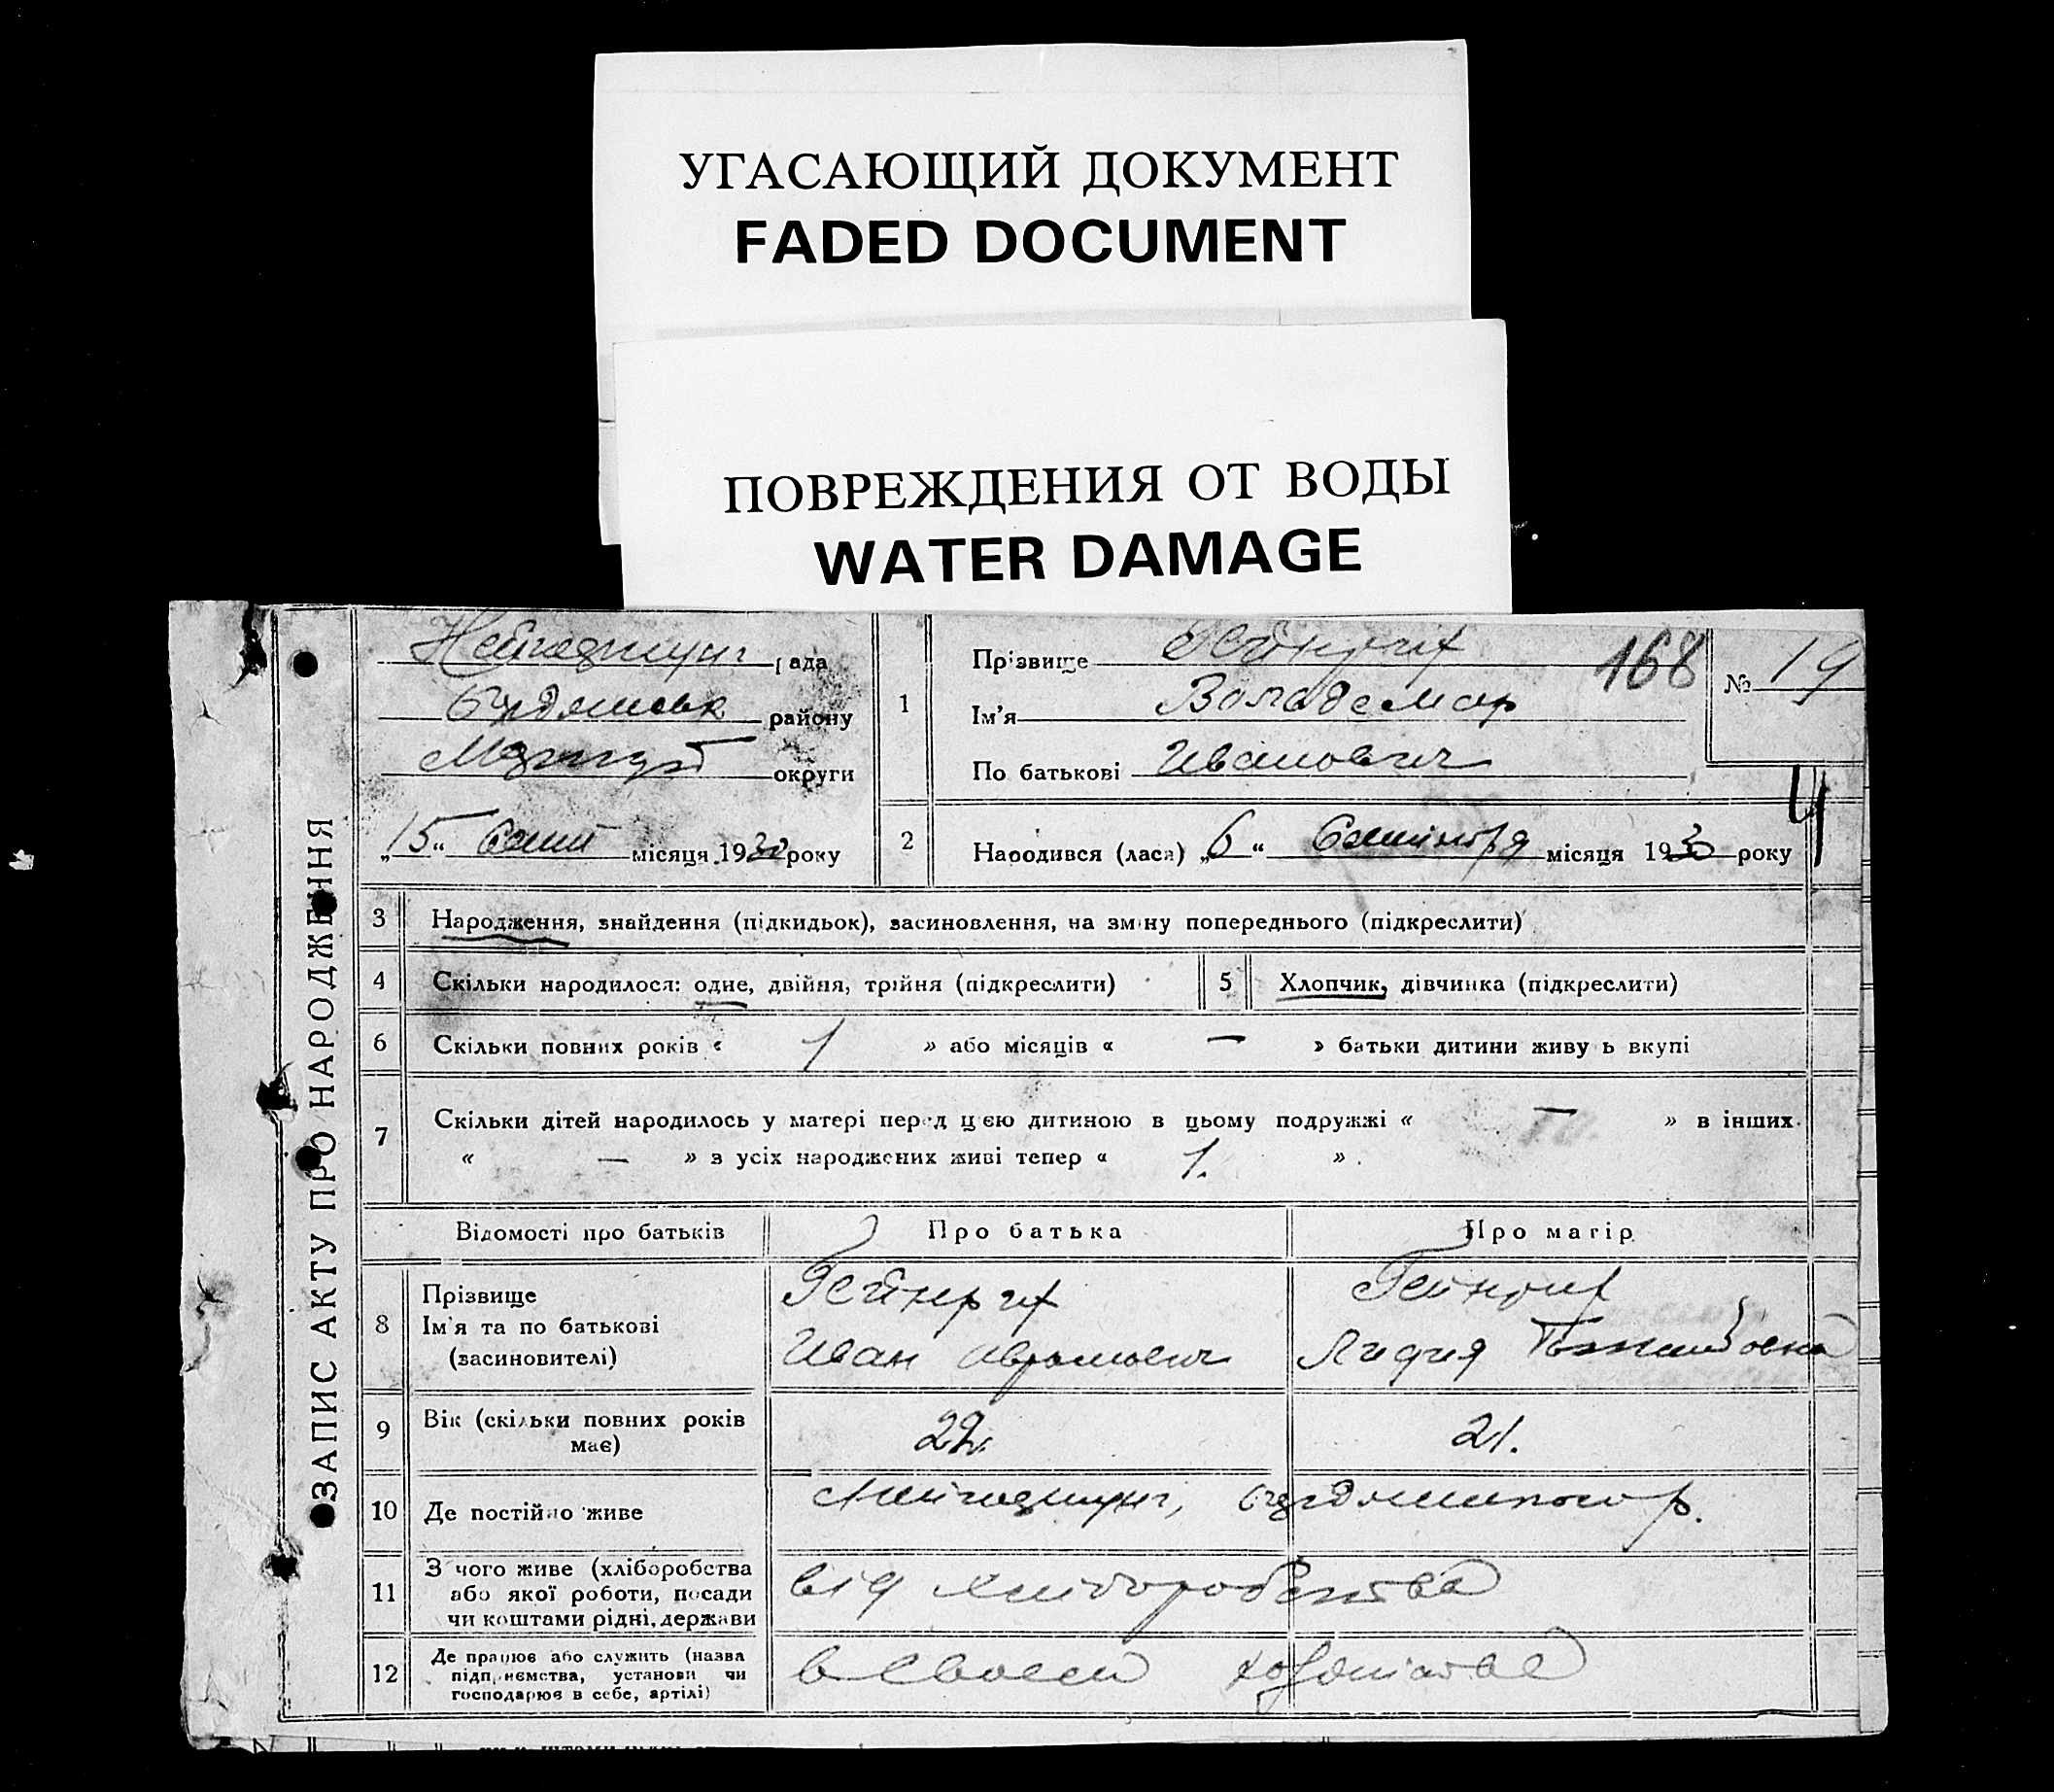 УГАСАЮЩИЙ ДОКУМЕНТ
FADED DOCUMENT
ПОВРЕЖДЕНИЯ ОТ ВОДЫ
WATER DAMAGE
ЗАПИС АКТУ ПРО НАРОДЖЕННЯ
рада
району
округи
„15“ місяця 1930 року
168
№ 19
1
Прізвище Гейнрих
Ім'я Вольдемар
По батькові Иванович
2
Народився (лася) „6“ місяця 1930 року
3 Народження, знайдення (підкидьок), засиновлення, на зміну попереднього (підкреслити)
4 Скільки народилося: одне, двійня, трійня (підкреслити)
5 Хлопчик, дівчинка (підкреслити)
6 Скільки повних років « 1 » або місяців « — » батьки дитини живуть вкупі
7 Скільки дітей народилось у матері перед цією дитиною в цьому подружжі « — » в інших
« — » з усіх народжених живі тепер « 1. » .
Відомості про батьків Про батька Про матір
8 Прізвище
Ім'я та по батькові
(засиновителі)
Гейнрих
Иван Абрамович
Гейнрих
Лидия
9 Вік (скільки повних років
має)
22. 21.
10 Де постійно живе
р.
11 З чого живе (хліборобства
або якої роботи, посади
чи коштами рідні, держави
від хліборобства
12 Де працює або служить (назва
підприємства, установи чи
господарює в себе, артілі)
в своем